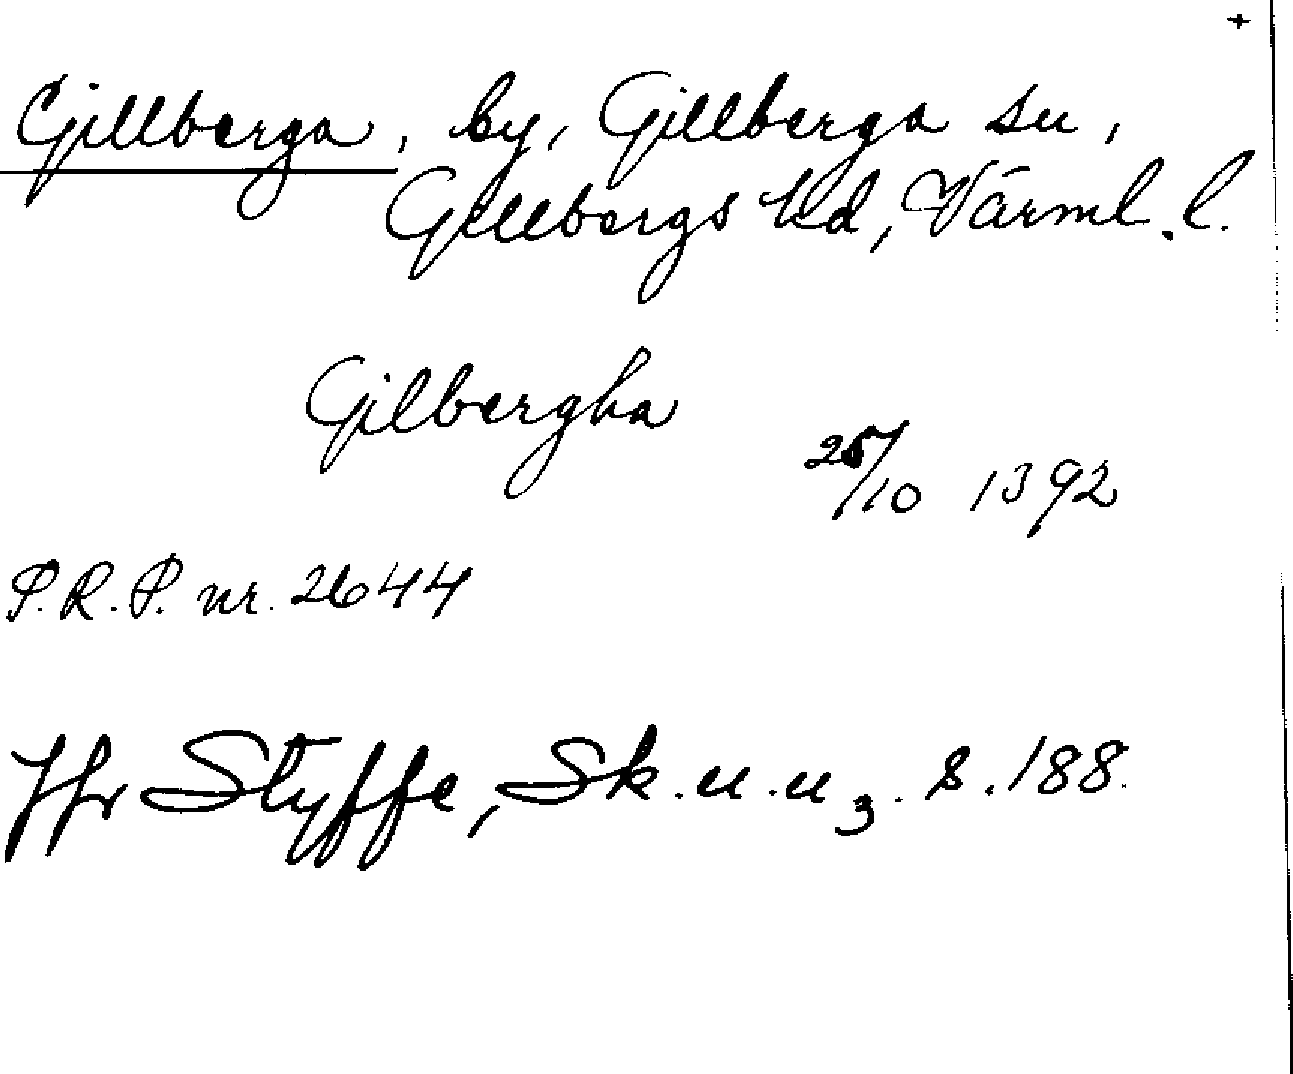 +
Gillberga, by, Gillberga sn,
Gillbergs hd, Värml. l.
Gilbergha
25/10 1392
P.R.P. nr. 2644
Jfr Styffe, Sk.u.u3. s. 188.